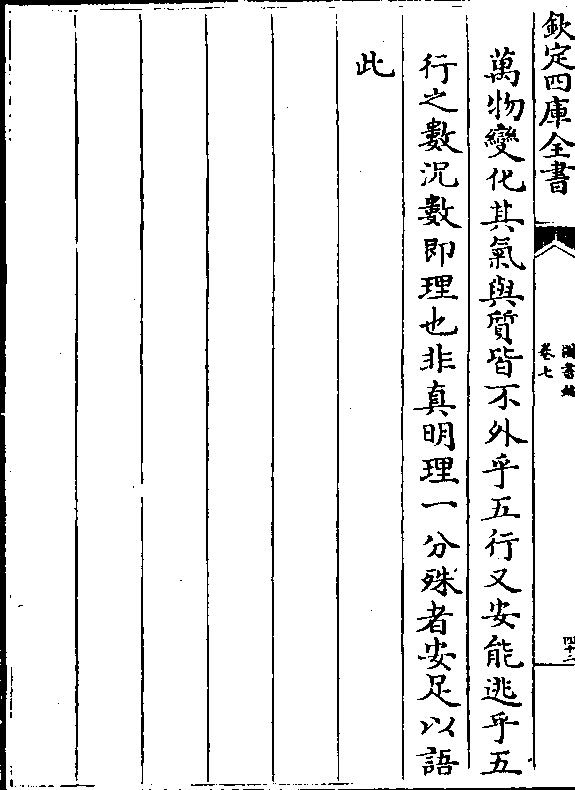 欽定四庫全書
圖書編
卷七
四十二
萬物變化其氣與質皆不外乎五行又安能逃乎五
行之數況數即理也非真明理一分殊者安足以語
此